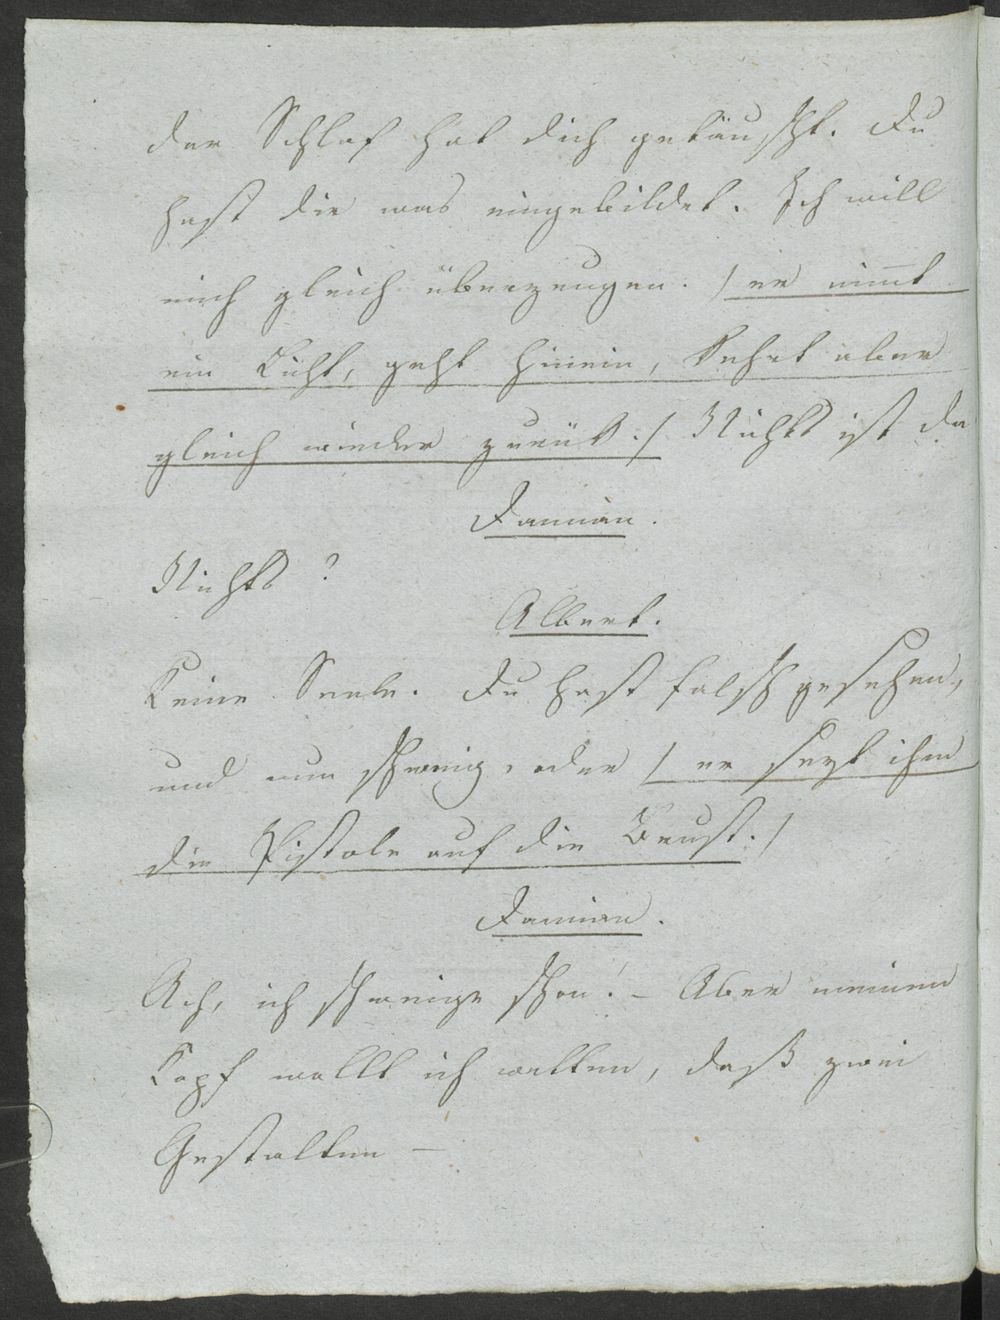 der Schlaf hat dich getäuscht. Du
hast dir was eingebildet. Ich will
mich gleich überzeugen. / er nim̅t
ein Licht, geht hinein, kehrt aber
gleich wieder zurük. / Nichts ist da
Damian.
Nichts?
Albert.
Keine Seele. Du hast falsch gesehen,
und nun schweig, oder / er sezt ihm
die Pistole auf die Brust. /
Damian.
Ach, ich schweige schon! – Aber meinen
Kopf wollt ich wetten, daß zwei
Gestalten –